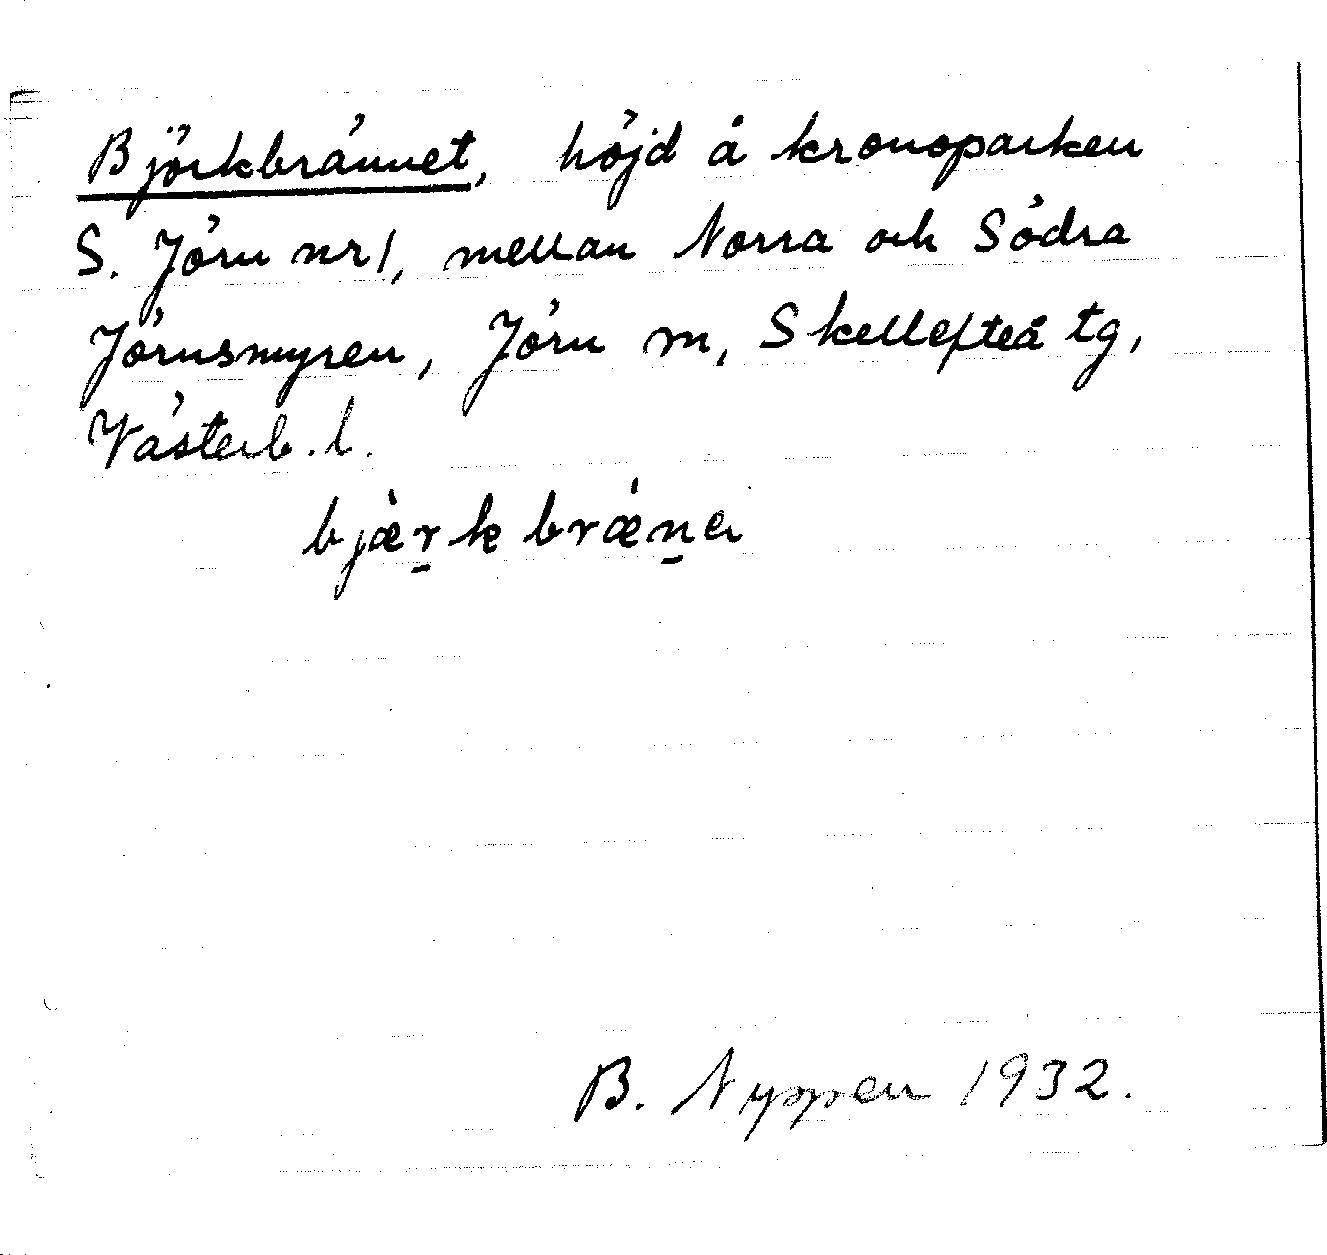 Björkbrännet, höjd å kronoparken
S. Jörn nr 1, mellan Norra och Södra
Jörnsmyren, Jörn sn, Skellefteå tg,
Västerb. l.
bjæ̀r̠kbræ̀n̠a
B. Nyppen 1932.